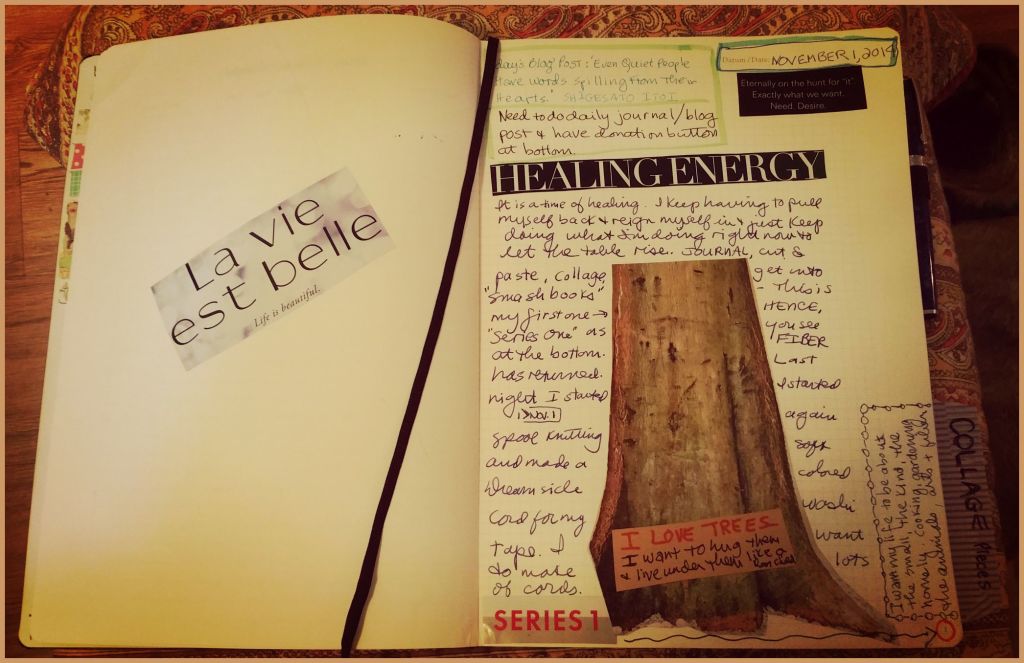 La vie
est belle
Life is beautiful.
day's Blog Post: 'Even Quiet People
have words spilling from their
hearts.' SHIGESATO ITOI
Need to do daily journal/blog
post & have donation button
at bottom.
Datum / Date: NOVEMBER 1, 2014
Eternally on the hunt for "it"
Exactly what we want.
Need. Desire.
HEALING ENERGY
It is a time of healing. I keep having to pull
myself back & reign myself in & just keep
doing what I'm doing right now to
let the table rise. JOURNAL, cut &
paste, collage, get into
"smash books" - This is
my first one → HENCE,
"Series One" as you see
at the bottom. FIBER
has returned. Last
night I started I started
Nov. 1 again
spool knitting soft
and made a colored
cord for my washi
tape. I want
to make lots
of cords.
I LOVE TREES
I want to hug them
& live under them like a
SERIES 1
I want my life to be about
the small, the kind, the
homely: cooking, gardening
the animals, arts +
COLLAGE
Pieces